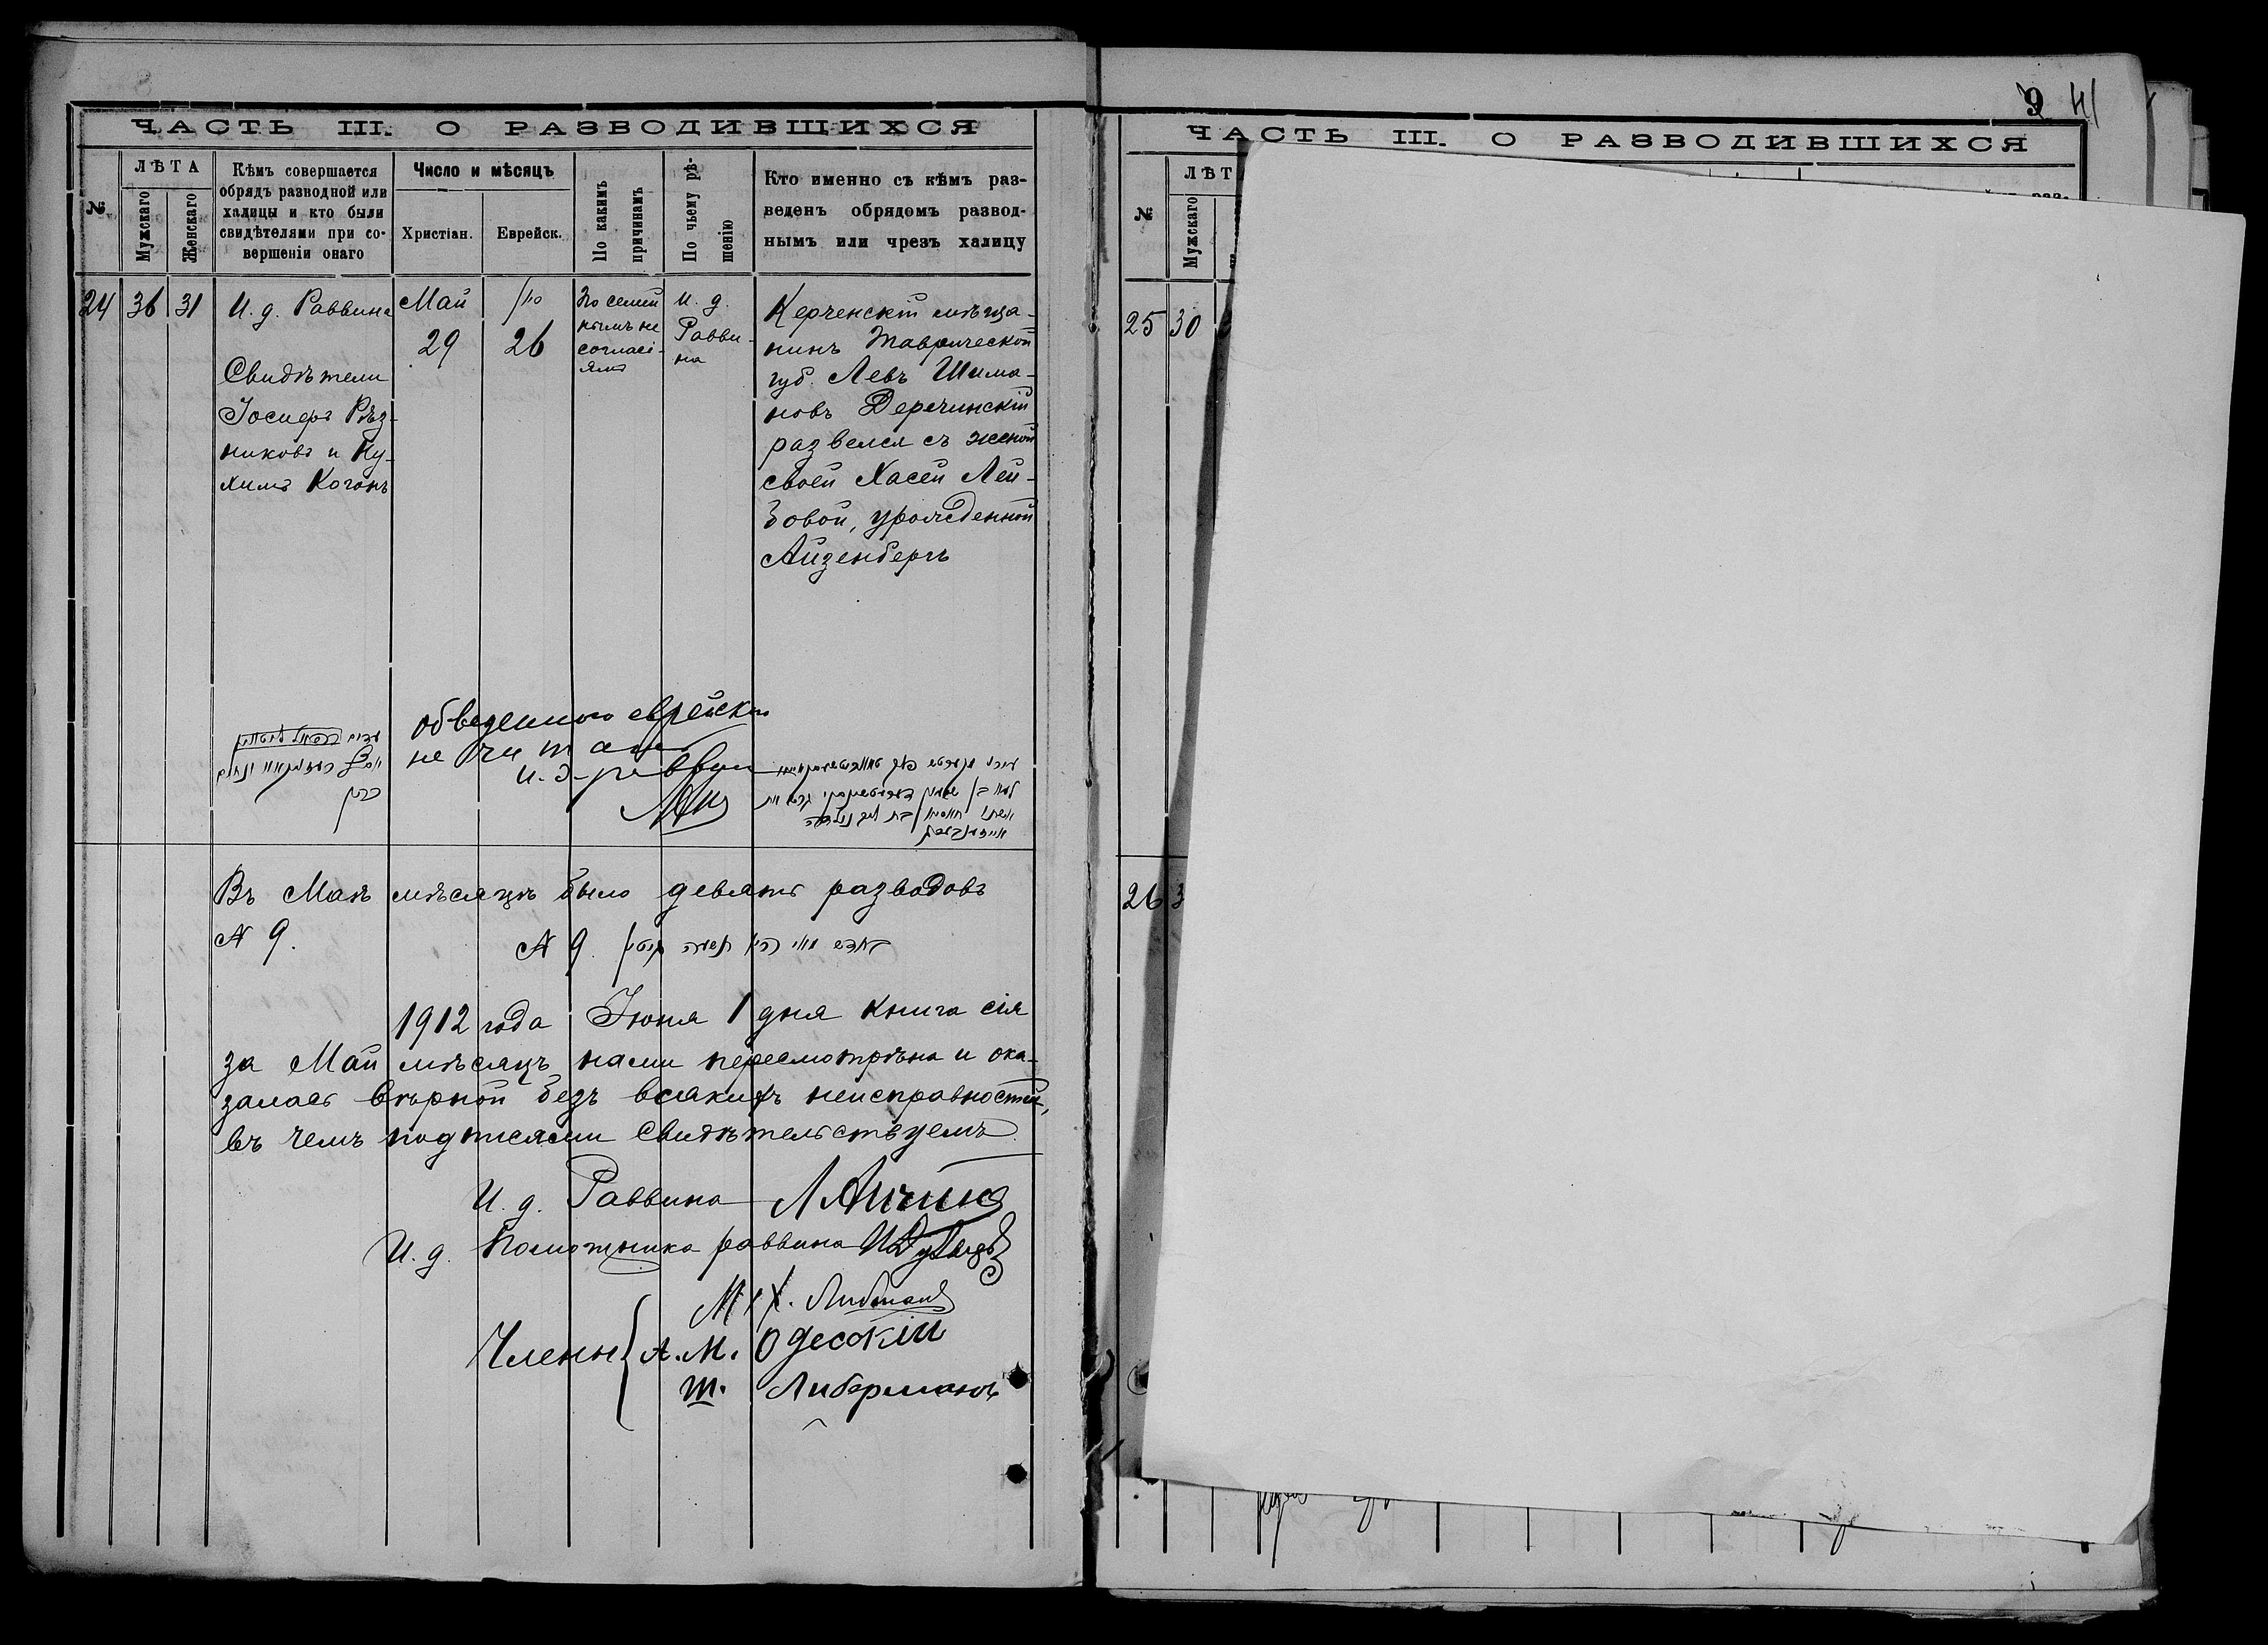 ЧАСТЬ III. О РАЗВОДИВШИХСЯ
№
ЛѢТА
Мужскаго
Женскаго
Кѣмъ совершается
обрядъ разводной или
халицы и кто были
свидѣтелями при со-
вершеніи онаго
Число и мѣсяцъ
Христіан.
Еврейск.
По какимъ
причинамъ
По чьему рѣ-
шенію
Кто именно съ кѣмъ раз-
веденъ обрядомъ развод-
нымъ или чрезъ халицу
24
36
31
И. д. Раввина
Свидѣтели
Іосифъ Рѣз-
никовъ и Ну-
химъ Коганъ
Май
29
סיון
26
По семей
нымъ не
согласі-
ямъ
И. д.
Равви-
на
Керченскій мѣща-
нинъ Таврической
губ. Левъ Шима-
новъ Деречинскій
развелся съ женой
своей Хасей Лей-
зовой, урожденной
Айзенбергъ
обведенного еврейски
не читать
и. д. раввин
עדים
כהן
Въ Маѣ мѣсяцѣ было девять разводовъ
№ 9.
№ 9. בחדש מאי היו תשעה גיטין
1912 года Іюня 1 дня книга сія
за Май мѣсяцъ нами пересмотрѣна и ока-
залась вѣрной безъ всякихъ неисправностей,
въ чемъ подписями свидѣтельствуемъ.
И. д. Раввина
И. д. Помощника раввина
М. Х. Либман
Члены А. М. Одесскій
Ш. Либерманъ
9
41
ЧАСТЬ III. О РАЗВОДИВШИХСЯ
№
ЛѢТ
Мужскаго
25
30
26
3